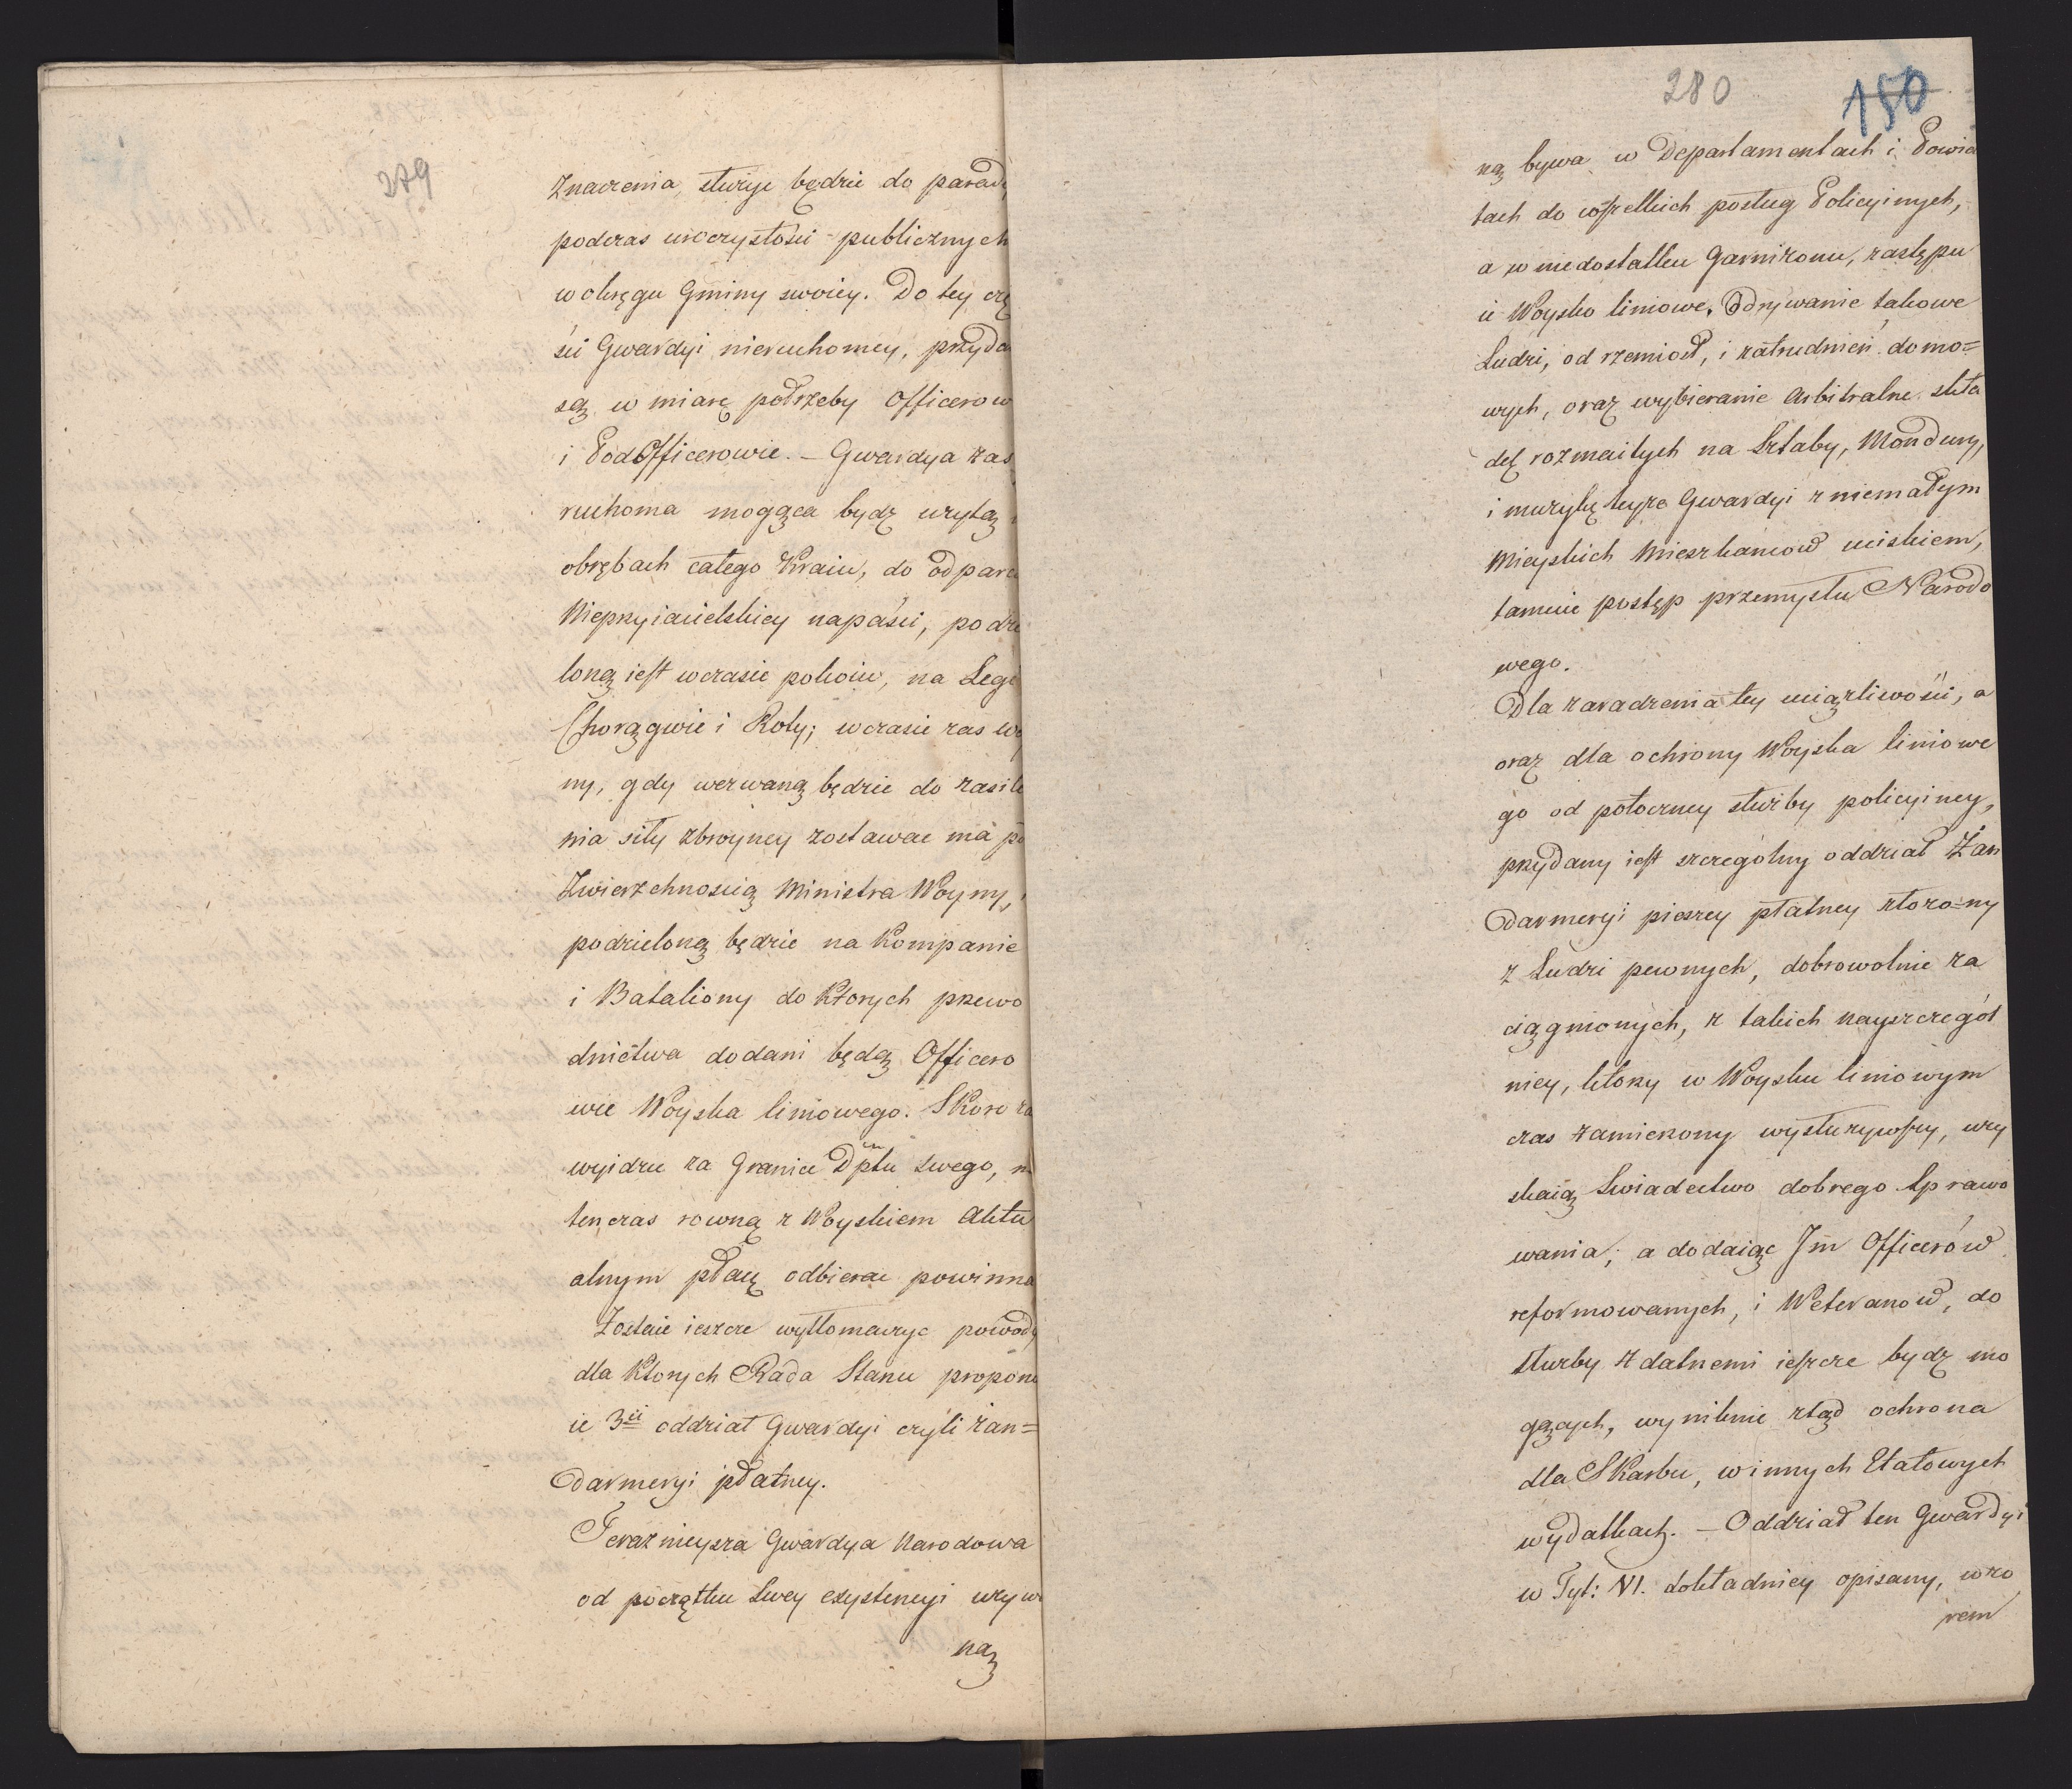 279
znaczenia, służyć będzie do parad,
podczas uroczystości publicznych
w okręgu Gminy swoiey. Do tey czę
ści Gwardyi nieruchomey, przyda
są w miarę potrzeby Officerow
i PodOfficerowie. – Gwardya zaś
ruchoma mogąca bydz użytą
obrębach całego Kraiu, do odparc
Nieprzyiacielskiey napaści, podzie
loną iest w czasie pokoiu, na Legi
Chorągwie i Roty; w czasie zas wo
ny, gdy wezwaną będzie do zasile
nia siły zbroyney zostawac ma po
Zwierzchnoscią Ministra Woyny,
podzieloną będzie na Kompanie
i Bataliony do Ktorych przewo
dnictwa dodani będą Officero
wie Woyska liniowego. Skoro za
wyidzie za Granice Dptu swego, n
tenczas rowną z Woyskiem Aktu
alnym płacę odbierac powinna
Zostaie ieszcze wytłomaczyc powody
dla Ktorych Rada Stanu proponu
ie 3ci oddział Gwardyi czyli żan=
darmeryi płatney.
Teraznieysza Gwardya Narodowa
od początku swey exystencyi używ
ną
280
150
ną bywa w Departamentach i Powia
tach do wszelkich posług Policyinych,
a w niedostatku Garnizonu, zastępu
ie Woysko liniowe. Odrywanie takowe
Ludzi, od rzemiosł, i zatrudnień domo=
wych, oraz wybieranie arbitralne skła
dek rozmaitych na Sztaby, Mondury,
i muzykę teyże Gwardyi z niemałym
Mieyskich Mieszkancow uciskiem,
tamuie postęp przemysłu Narodo
wego.
Dla zaradzenia tey uciążliwości, a
oraz dla ochrony Woyska liniowe
go od potoczney służby policyiney,
przydany iest szczególny oddział Żan
darmeryi pieszey płatney złożo=ny
z Ludzi pewnych, dobrowolnie za
ciągnionych, z takich nayszczegół
niey, którzy w Woysku liniowym
czas zamierzony wysłużywszy, uzy
skaią Świadectwo dobrego Sprawo
wania; a dodaiąc Im Officerów
reformowanych, i Weteranow, do
służby zdatnemi ieszcze bydz mo
gących, wyniknie ztąd ochrona
dla Skarbu, w innych Etatowych
wydatkach. – Oddział ten Gwardyi
w Tyt: VI. dokładniey opisany, wzo
rem